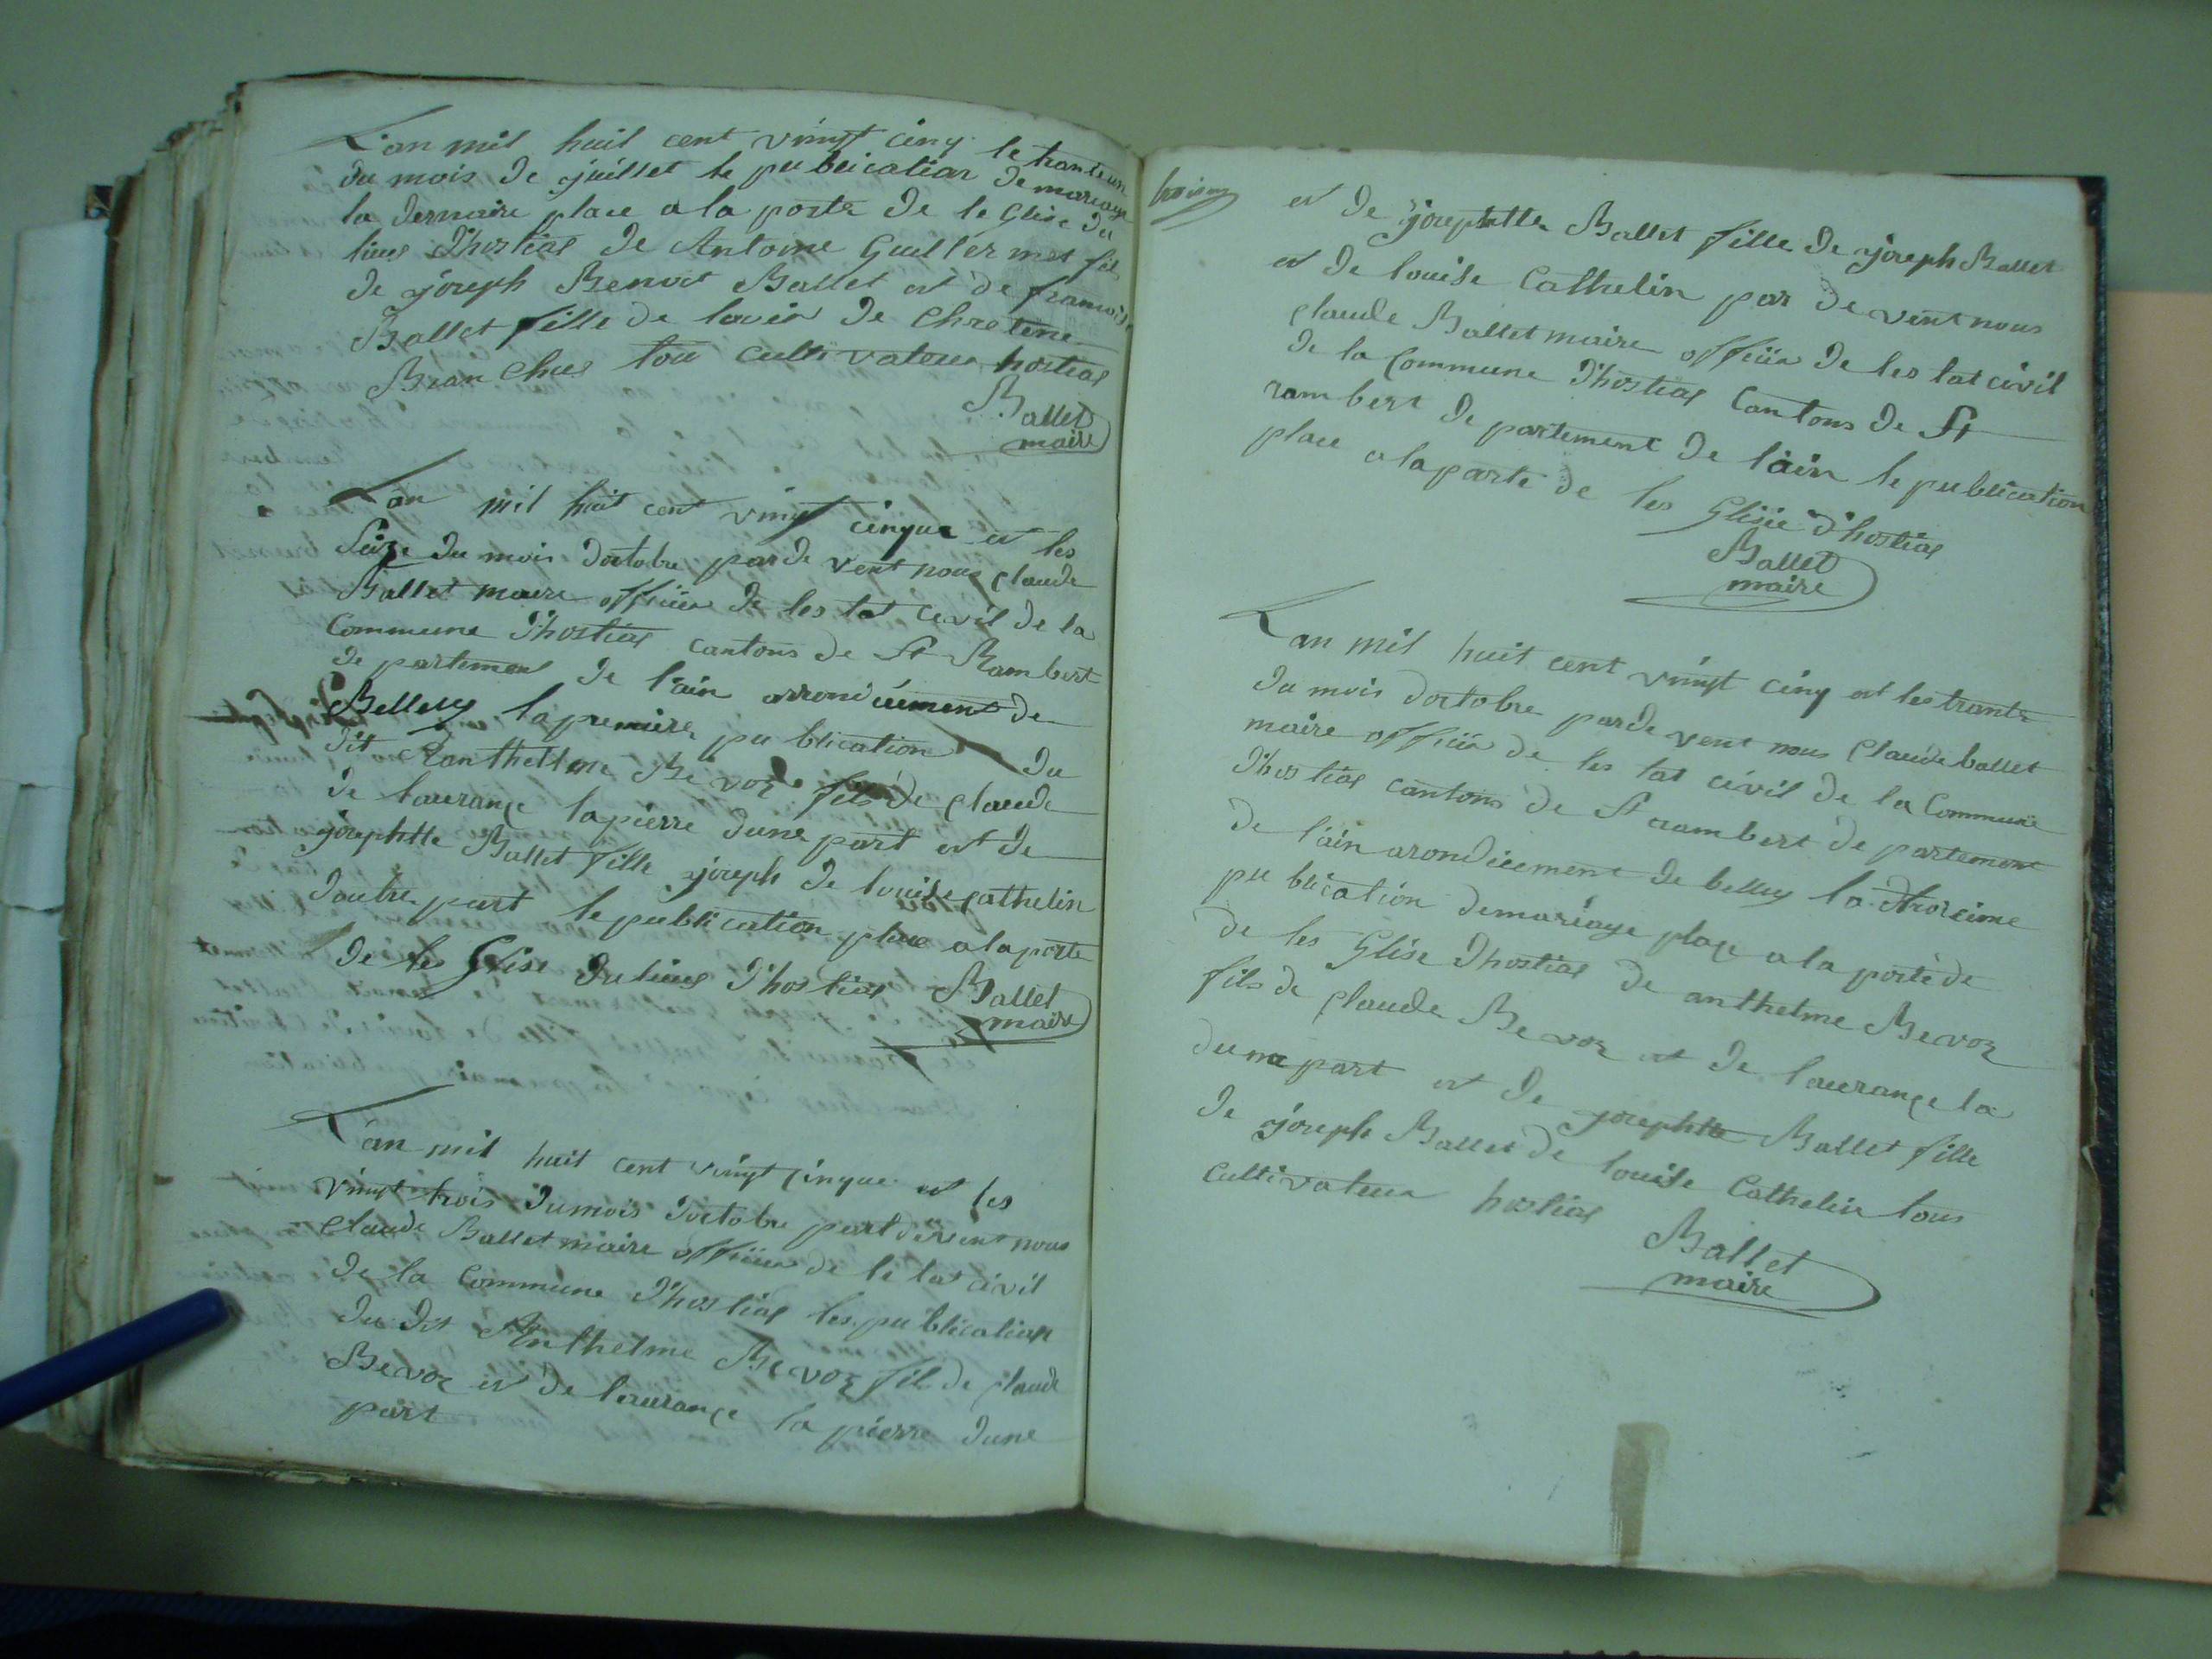 L'an mil huit cent vingt cinq le tranteun
du mois de juillet le publication de mariage
la dernaire place a la porte de le Glise du
lieus d'hostias de Antoine Guillermet fils
de joseph Benoit Ballet et de francoise
Ballet fille de louis de Chretine
Branchus tou cultivateur hostias
Ballet
maire
L'an mil huit cent vingt cinque et les
Seize du mois doctobre par de vent nous claude
Ballet maire officier de les tat civil de la
Commune d'hostias cantons de St Rambert
de partement de l'ain arrondicement de
Belley la premiere publication du
dit anthelme Bevoz fils de claude
de laurance lapierre dune part et de
josephtte Ballet fille joseph de louise cathelin
dautre part le publication place a la porte
de les Glise du lieus d'hostias Ballet
maire
L'an mil huit cent vingt cinque et les
vingt trois du mois doctobre part devent nous
claude Ballet maire officier de le tat civil
de la Commune d'hostias les publication
du dit Anthelme Bevoz fils de claude
Bevoz et de laurance la pierre dune
part
et de josephtte Ballet fille de joseph Ballet
et de louise Cathelin par de vent nous
claude Ballet maire officier de les tat civil
de la Commune d'hostias Cantons de St
rambert de partement de l'ain le publication
place a la porte de les Glisie d'hostias
Ballet
maire
L'an mil huit cent vingt cinq et les trante
du mois doctobre par de vent nous Claude ballet
maire officier de les tat civil de la Commune
d'hostias cantons de St rambert de partement
de l'ain arondicement de belley la troisime
publication de mariage place a la porte de
de les Glise d'hostias de anthelme Bevoz
fils de claude Bevoz et de laurance la
dune part et de josephtte Ballet fille
de joseph Ballet de louise Cathelin tous
cultivateur hostias
Ballet
maire